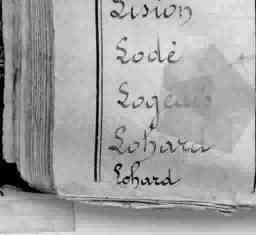 Lision
Lodé
Logeais
Lohard
Lohard